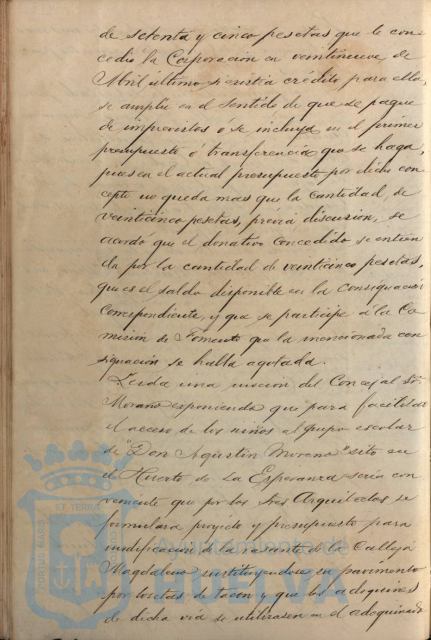 de setenta y cinco pesetas que le con-
cedió la Corporación en veintinueve de
Abril último si existia crédito para ello,
se amplíe en el sentido de que se pague
de imprevistos ó se incluya en el primer
presupuesto ó transferencia que se haga,
pues en el actual presupuesto por dicho con-
cepto no queda mas que la cantidad de
veinticinco pesetas, prévia discusión, se
acordó que el donativo concedido se entien-
da por la cantidad de veinticinco pesetas,
que es el saldo disponible en la consignación
correspondiente, y que se participe á la Co-
misión de Fomento que la mencionada con-
signación se halla agotada.
Leida una moción del Concejal Sr.
Morano exponiendo que para facilitar
el acceso de los niños al grupo escolar
de "Don Agustin Moreno" sito en
el Huerto de La Esperanza seria con-
veniente que por los Sres Arquitectos se
formulara proyecto y presupuesto para
modificación de la rasante de la Calleja
Magdalena sustituyendose su pavimento
por losetas de y que los adoquines
de dicha via se utilizasen en el adoquinado
Ayuntamiento de